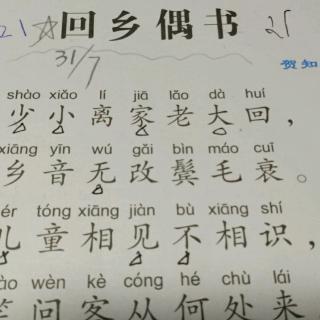 21 ☆ 回乡偶书 21
31/7
贺知
shào xiǎo lí jiā lǎo dà huí
少小离家老大回，
xiāng yīn wú gǎi bìn máo cuī
乡音无改鬓毛衰。
ér tóng xiāng jiàn bù xiāng shí
儿童相见不相识，
ào wèn kè cóng hé chù lái
笑问客从何处来